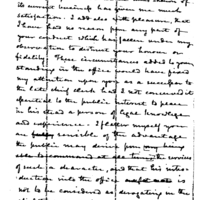 of the current business has given me much
satisfaction. I add also with pleasure, that
I have had no reason from any part of
your conduct which has fallen under my
observation to distrust your honour or
fidelity. These circumstances added to your
standing in the office would have fixed
my attention on you as a successor to
the late chief clerk had I not conceived it
essential to the public interest to place
in his stead a person of legal knowledge
and experience. I flatter myself you
are sensible of the advantage
the public may derive from being
able to command at all times the services
of such a character, and that his intro-
duction into the office
is not to be considered as derogating in the